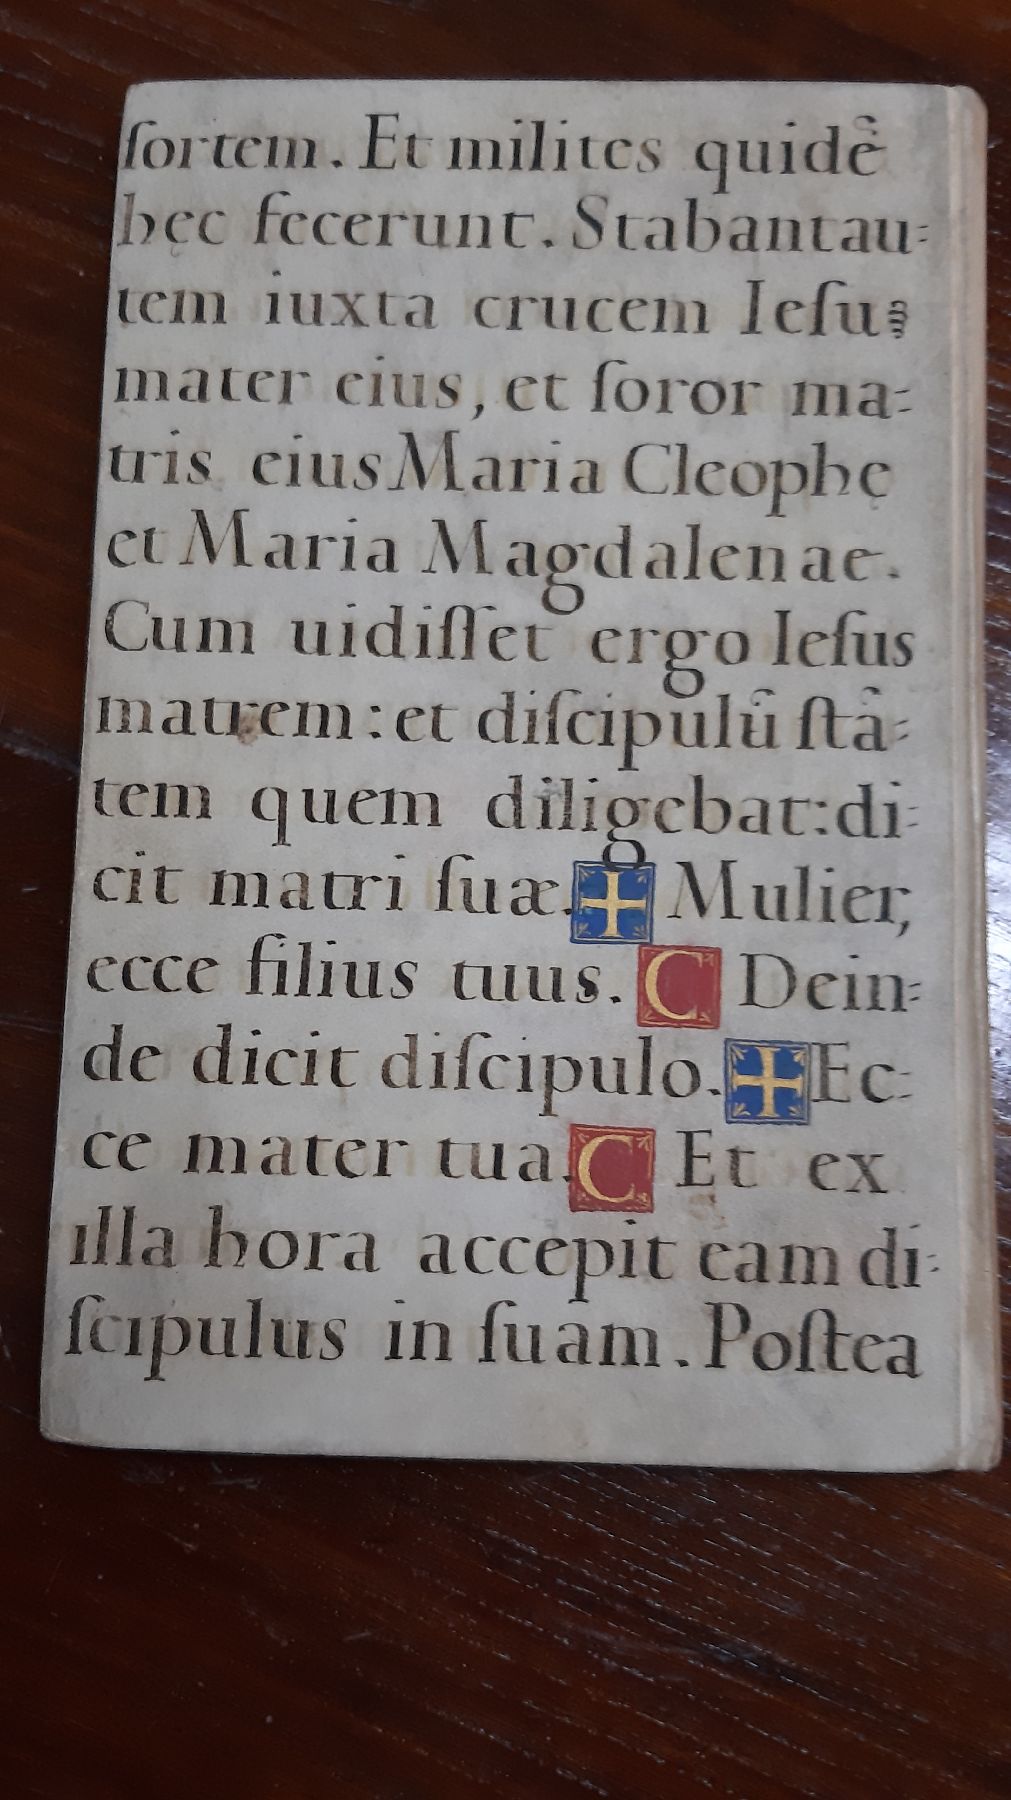 ſortem. Et milites quidẽ
hęc fecerunt. Stabant au=
tem iuxta crucem Ieſu
mater eius, et ſoror ma=
tris eius Maria Cleophę
et Maria Magdalenae.
Cum uidiſſet ergo Ieſus
matrem: et diſcipulũ ſtã=
tem quem diligebat: di=
cit matri ſuæ. + Mulier,
ecce filius tuus. C Dein=
de dicit diſcipulo. + Ec=
ce mater tua. C Et ex
ılla hora accepit eam di=
ſcıpulus in ſuam. Poſtea